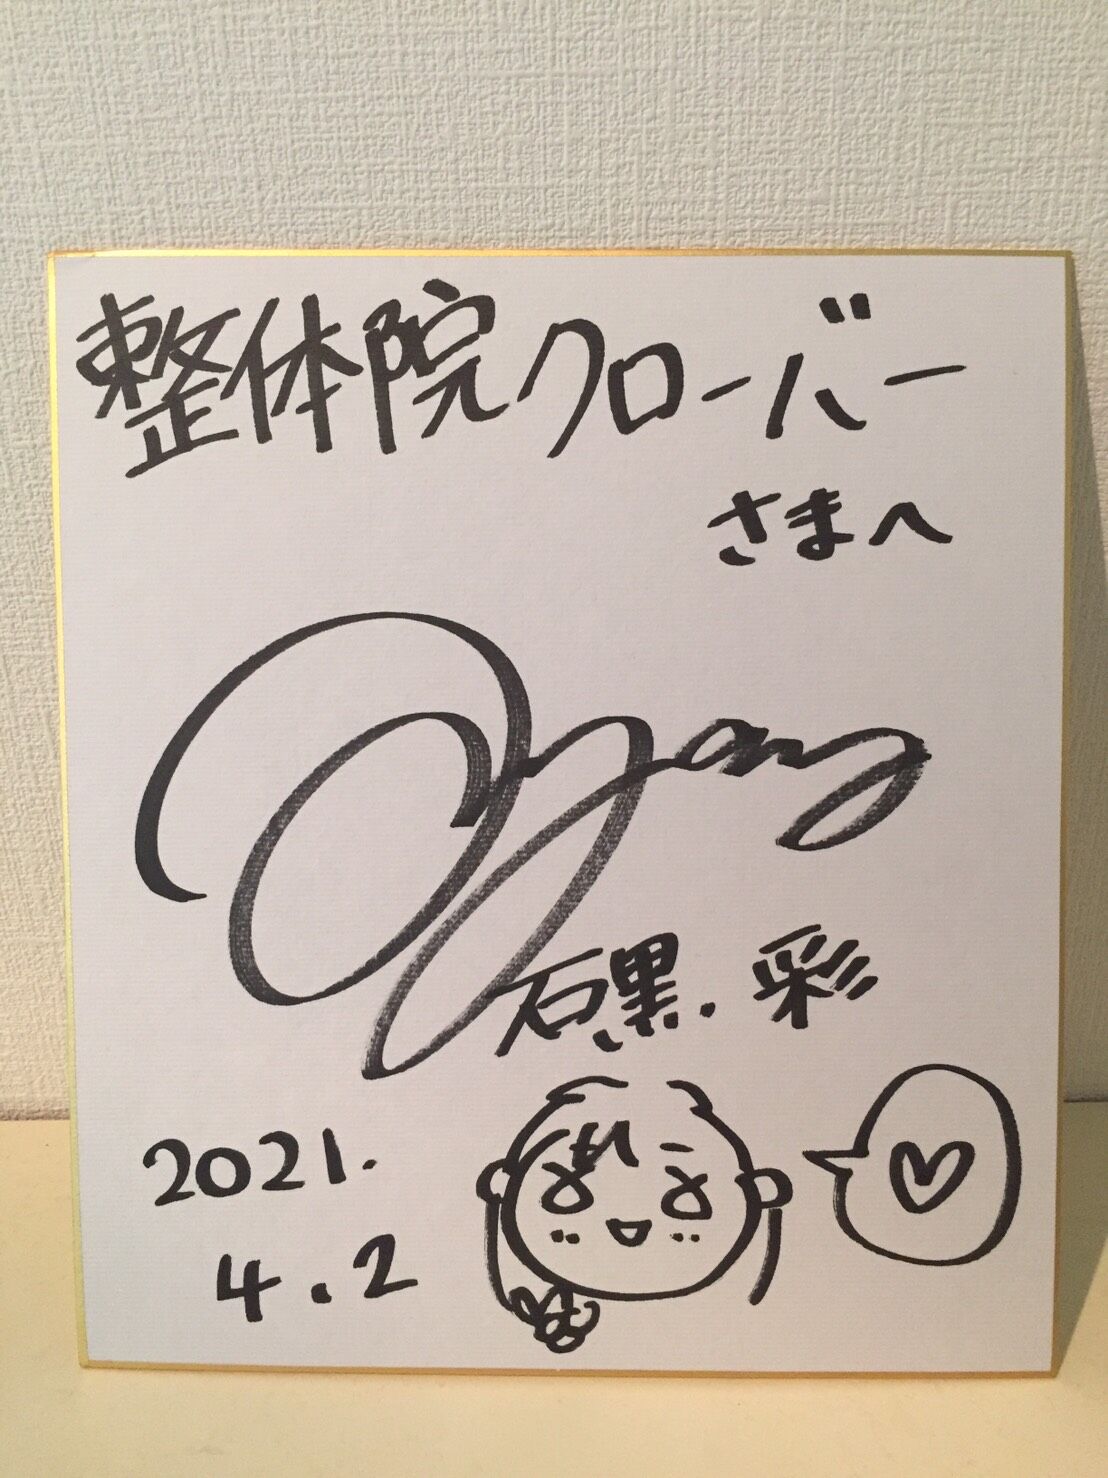 整体院クローバー
さまへ
石黒.彩
2021.
4.2